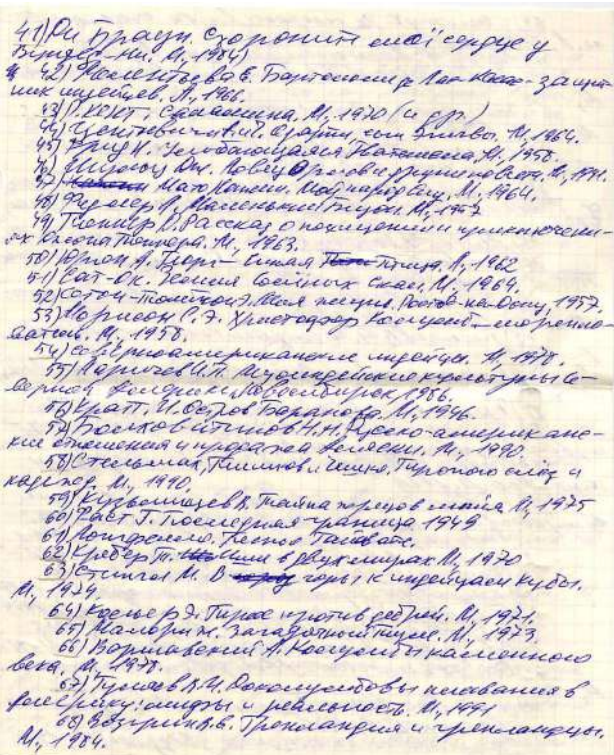 41) Ди Браун. Схороните моё сердце у
Вундед-Ни. М., 1984)
42) Мелентьева Е. Бартоломе де Лас-Касас - защит-
ник индейцев. Л., 1966.
43) Р. Кент, Саламина. М., 1970 (и др.)
44) М., 1964.
45) Рид М. Оцеола М., 1958.
46) Шульц Дж. Ловец Орлов М., 1991.
47) Мато Нажин. Мой народ сиу. М., 1964.
48) Фрадер Маленький Бизон. М., 1957
49) Теннер Д. Рассказ о похищении и приключени-
ях Джона Теннера. М., 1963.
50) Юрген А. Георг - Синяя птица. Л., 1962
51) Сат-Ок. Земля Солёных Скал. М., 1964.
52) Сетон-Томпсон Э. Моя жизнь. Ростов-на-Дону, 1957.
53) Морисон С.Э. Христофор Колумб - морепла-
ватель. М., 1958.
54) Североамериканские индейцы. М., 1978.
55) Ларичев И.П. Палеоиндейские культуры Се-
верной Америки, Новосибирск, 1986.
56) Кратт. И. Остров Баранова. М., 1946.
57) Болховитинов Н.Н. Русско-американс-
кие отношения и продажа Аляски. М., 1990.
58) Стельмах, Тишков и Чешко. Тропою слёз и
надежд. М., 1990.
59) Кузьмищев В. Тайна жрецов майя М., 1975
60) Фаст Г. Последняя граница 1949
61) Лонгфелло. Песнь о Гайавате.
62) Крёбер Т. Иши в двух мирах. М., 1970
63) Стингл М. В горы к индейцам Кубы.
М., 1974.
64) Кольер Э. Трое против дебрей. М., 1971.
65) Маклори Загадочный М., 1973.
66) Варшавский А. Колумбы каменного
века. М., 1978.
67) Гуляев В.И. Доколумбовы плавания в
Америку: мифы и реальность. М., 1991
68) Возгрин В.Е. Гренландия и гренландцы.
М., 1984.